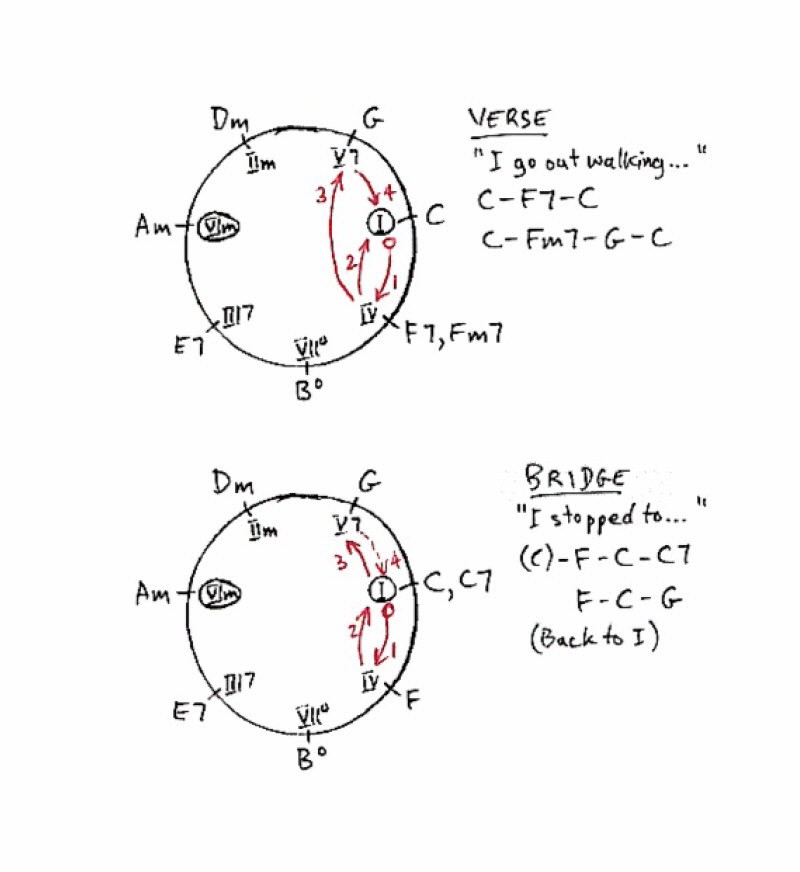 Dm
G
IIm
V7
Am
VIm
I
C
3
4
2
1
E7
III7
IV
F7, Fm7
VII°
B°
VERSE
"I go out walking..."
C-F7-C
C-Fm7-G-C
Dm
G
IIm
V7
Am
VIm
I
C, C7
3
4
2
1
E7
III7
IV
F
VII°
B°
BRIDGE
"I stopped to..."
(C)-F-C-C7
F-C-G
(Back to I)